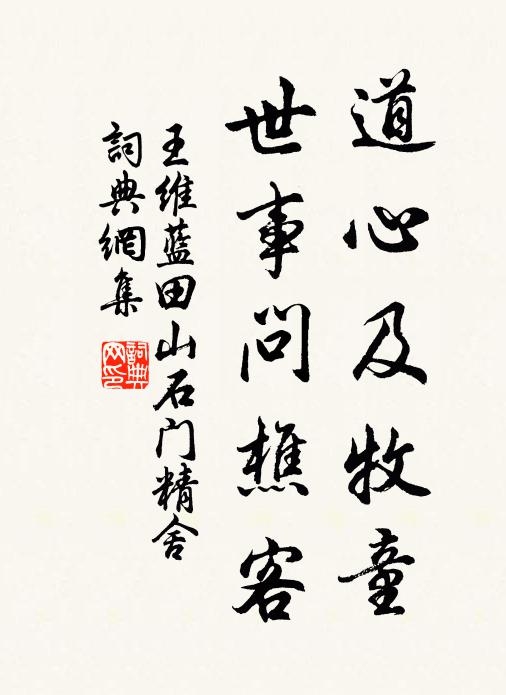 道心及牧童
世事問樵客
王維藍田山石门精舍
詞典網集
詞典网印